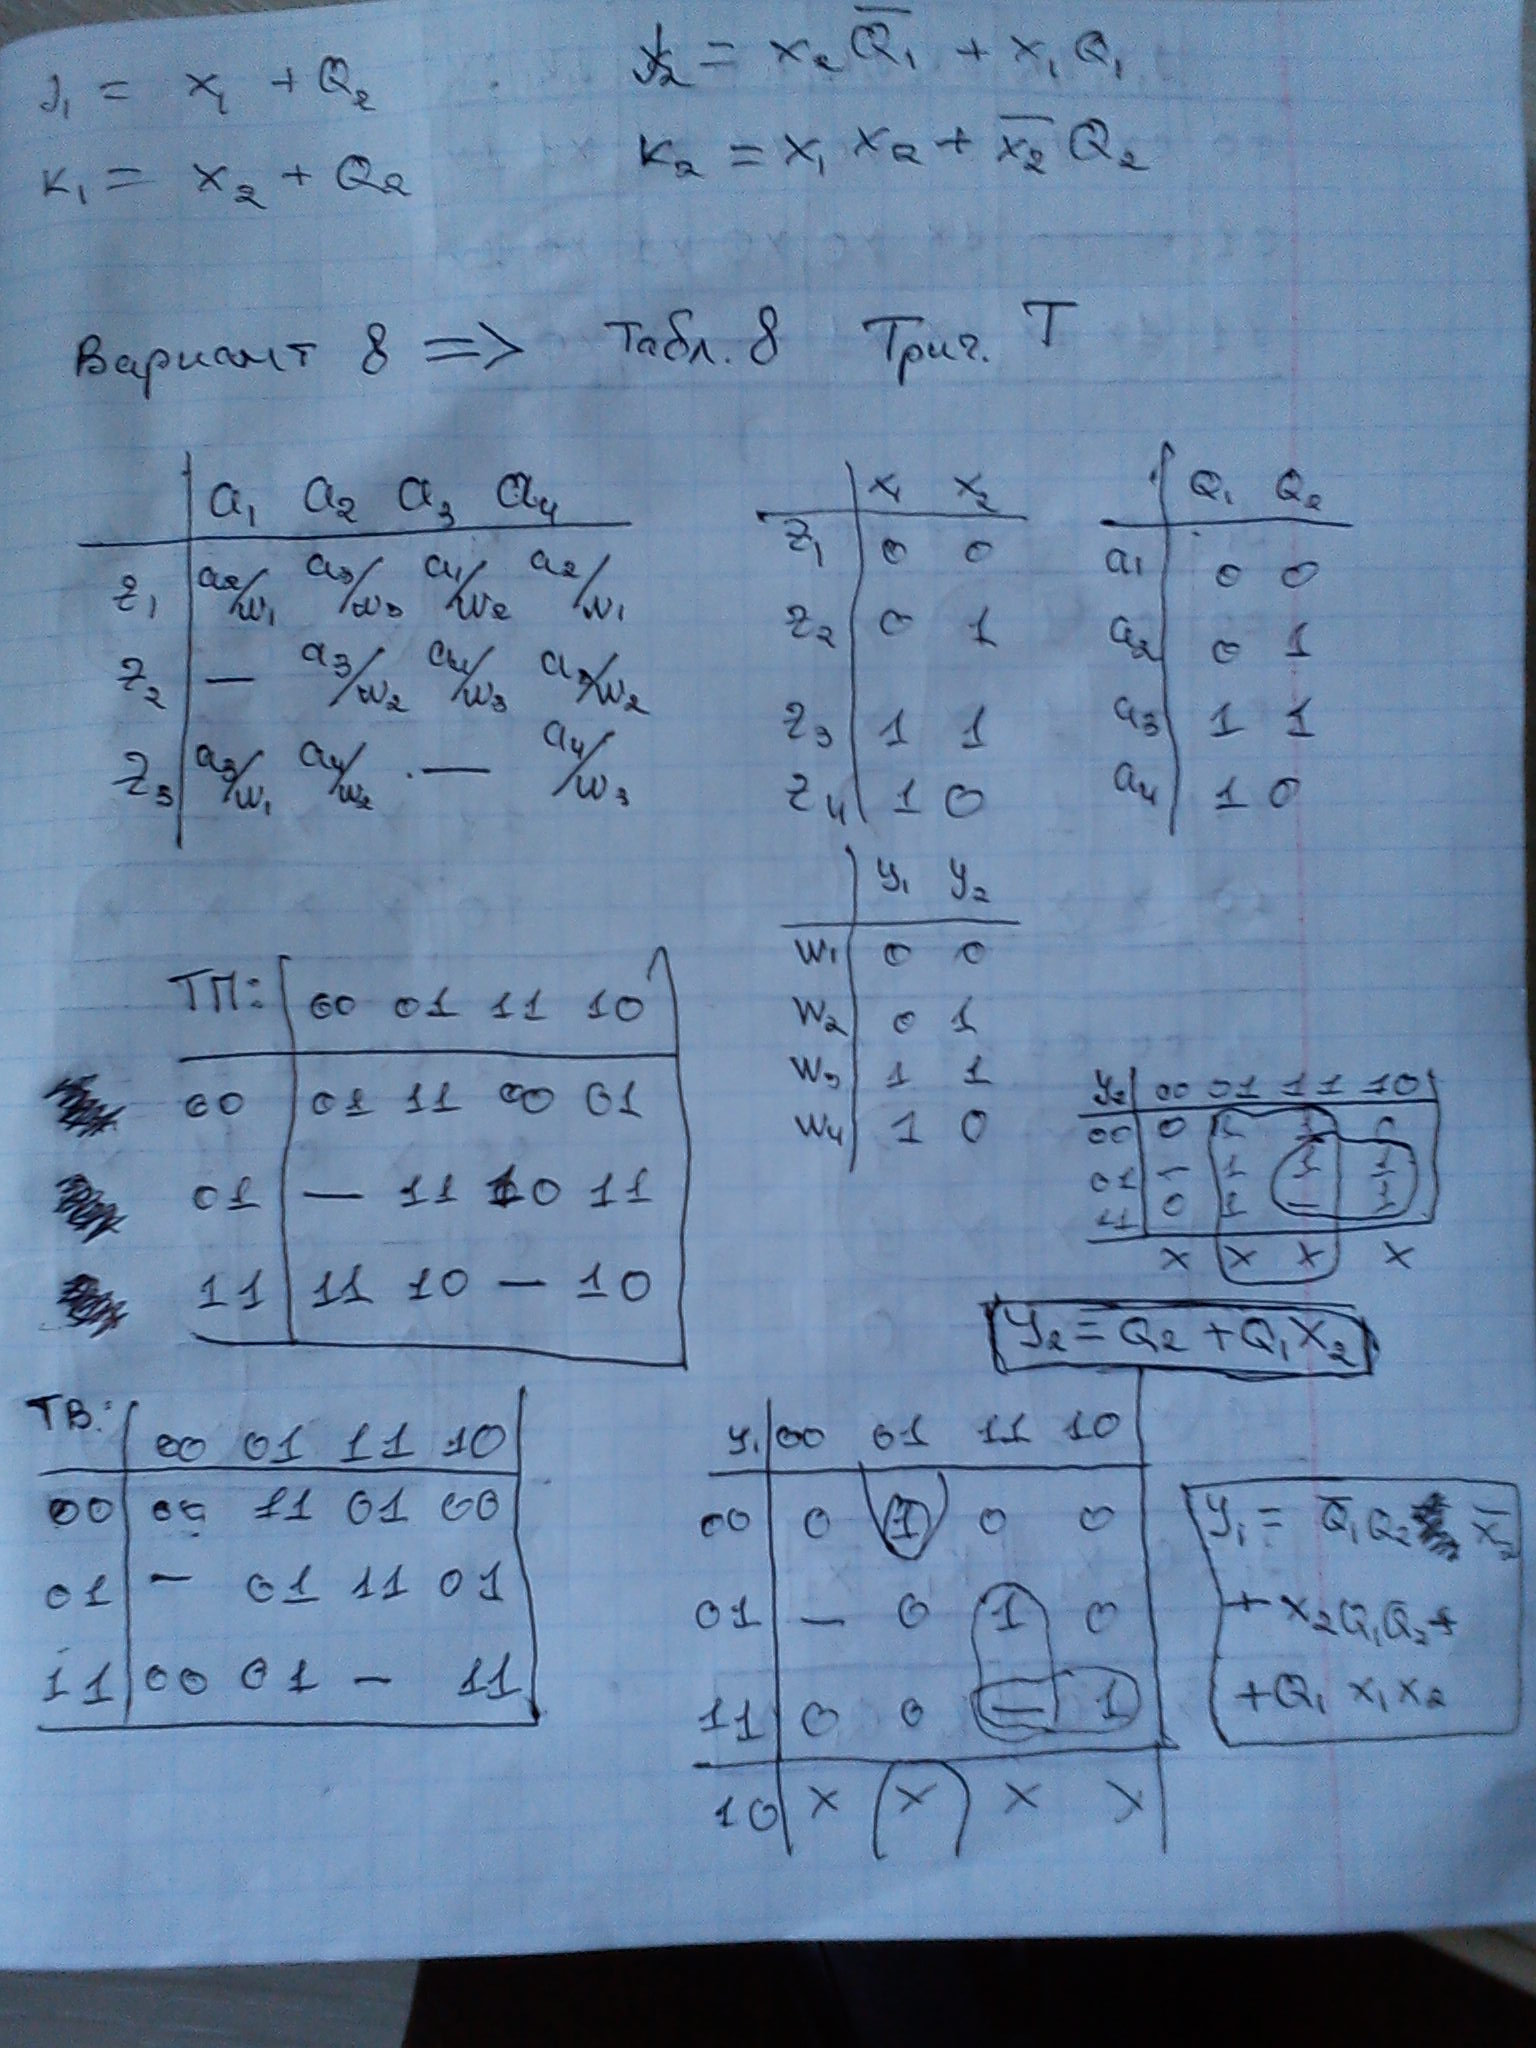 J₁ = x₁ + Q₂
J₂ = x₂ Q̅₁ + x₁ Q₁
K₁ = x₂ + Q₂
K₂ = x₁ x₂ + x̅₂ Q₂
Вариант 8 => Табл. 8 Триг. T
a₁ a₂ a₃ a₄
z₁ a₂/w₁ a₃/w₃ a₁/w₂ a₂/w₁
z₂ — a₃/w₂ a₄/w₃ a₃/w₂
z₃ a₃/w₁ a₄/w₂ — a₄/w₃
x₁ x₂
z₁ 0 0
z₂ 0 1
z₃ 1 1
z₄ 1 0
Q₁ Q₂
a₁ 0 0
a₂ 0 1
a₃ 1 1
a₄ 1 0
y₁ y₂
w₁ 0 0
w₂ 0 1
w₃ 1 1
w₄ 1 0
ТП: 00 01 11 10
00 01 11 00 01
01 — 11 10 11
11 11 10 — 10
y₂ 00 01 11 10
00 0 1 1 0
01 — 1 1 1
11 0 1 — 1
x x x x
y₂ = Q₂ + Q₁x₂
ТВ: 00 01 11 10
00 00 11 01 00
01 — 01 11 01
11 00 01 — 11
y₁ 00 01 11 10
00 0 1 0 0
01 — 0 1 0
11 0 0 — 1
10 x x x x
y₁ = Q̅₁Q₂ x̅₂
+ x₂Q₁Q₂ +
+ Q₁ x₁ x₂